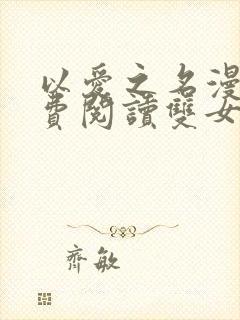 以愛之名漫
費閱讀雙女
齊敏